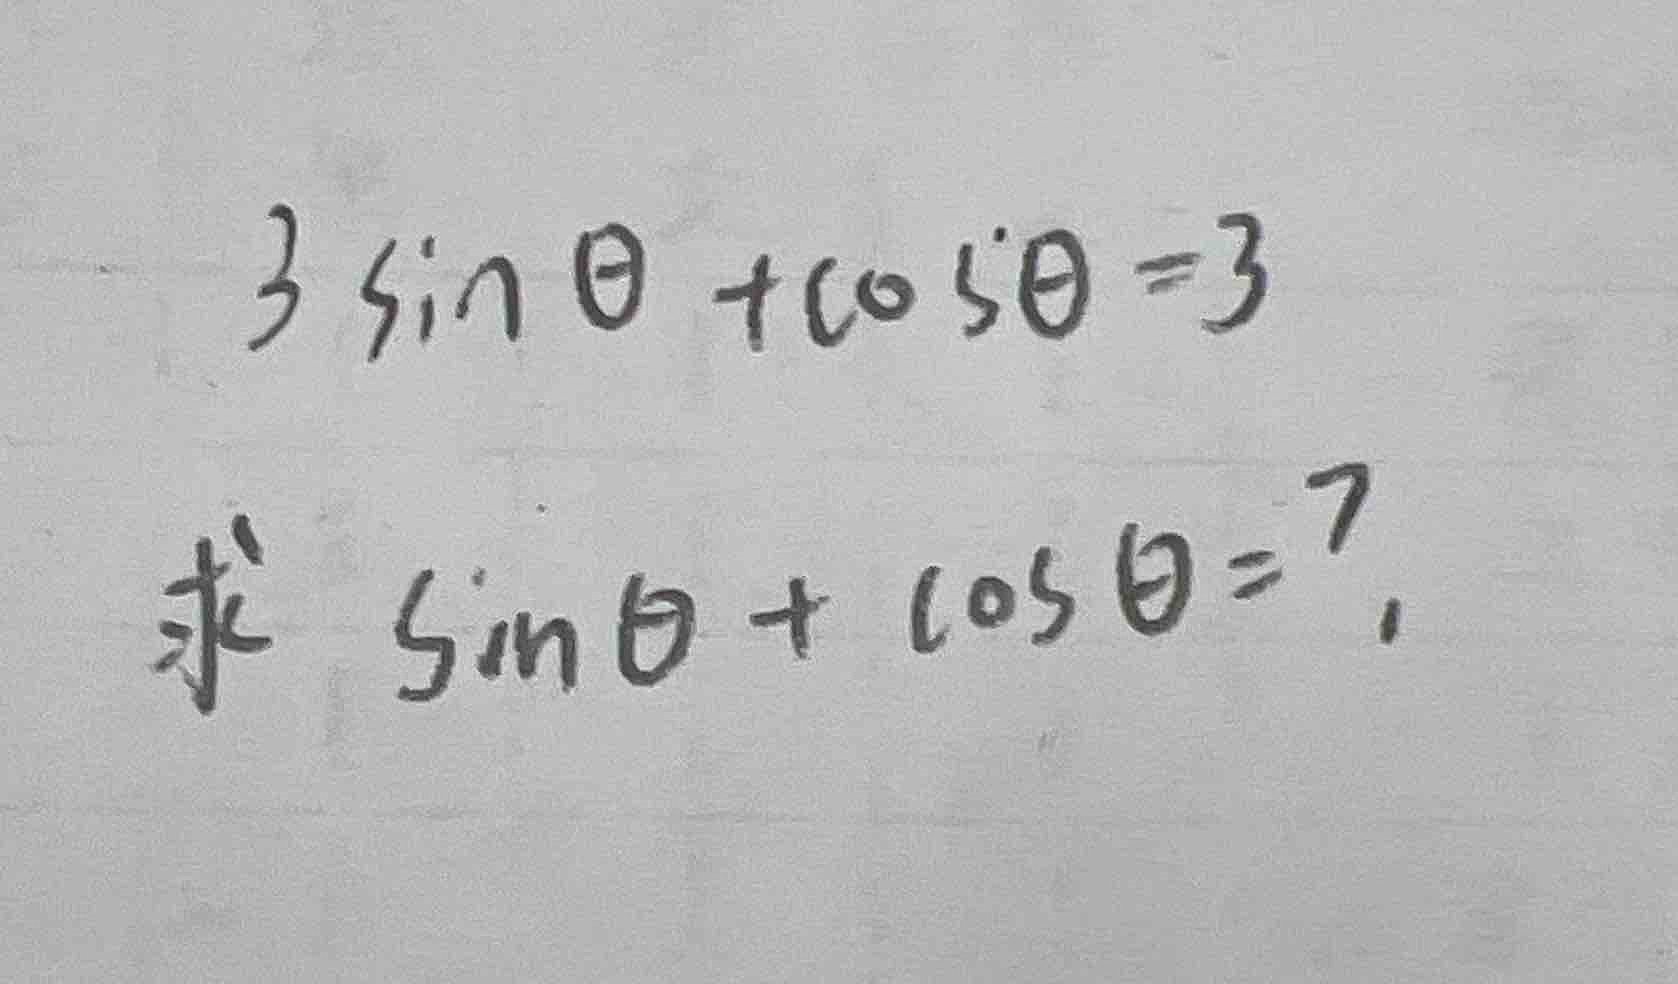 3 sin θ + cos θ = 3
求 sin θ + cos θ = ?.